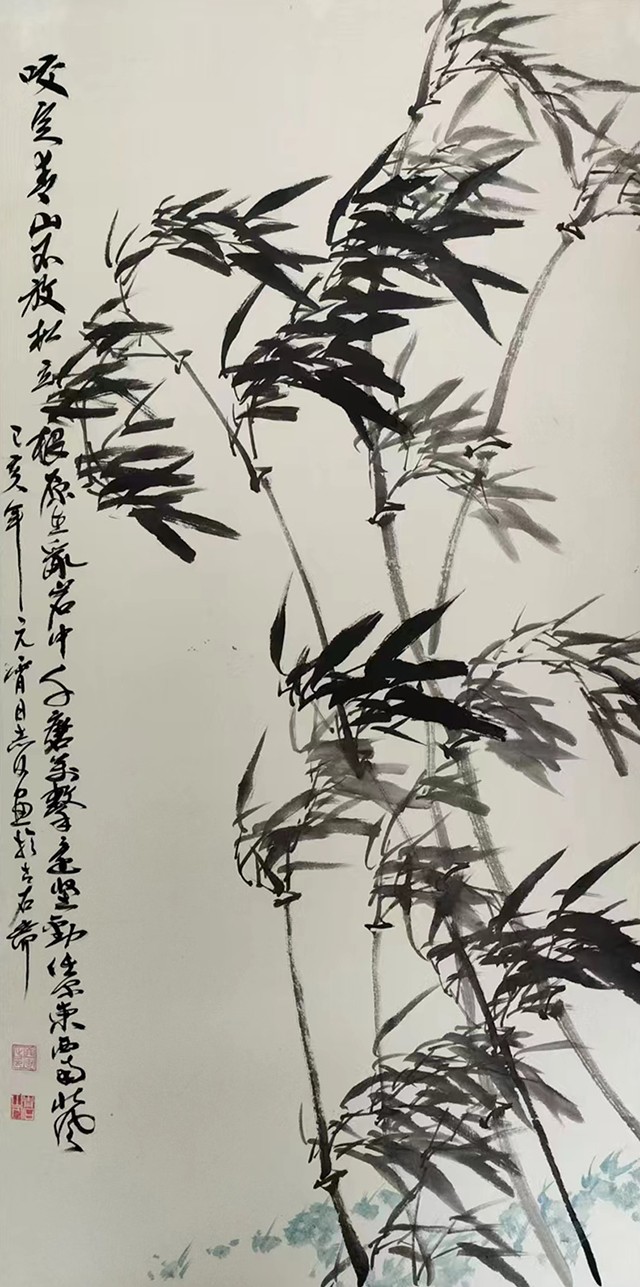 咬定青山不放松立根原在亂岩中千磨萬擊还坚劲任尔東西南北风
己亥年元宵日志画於石斋